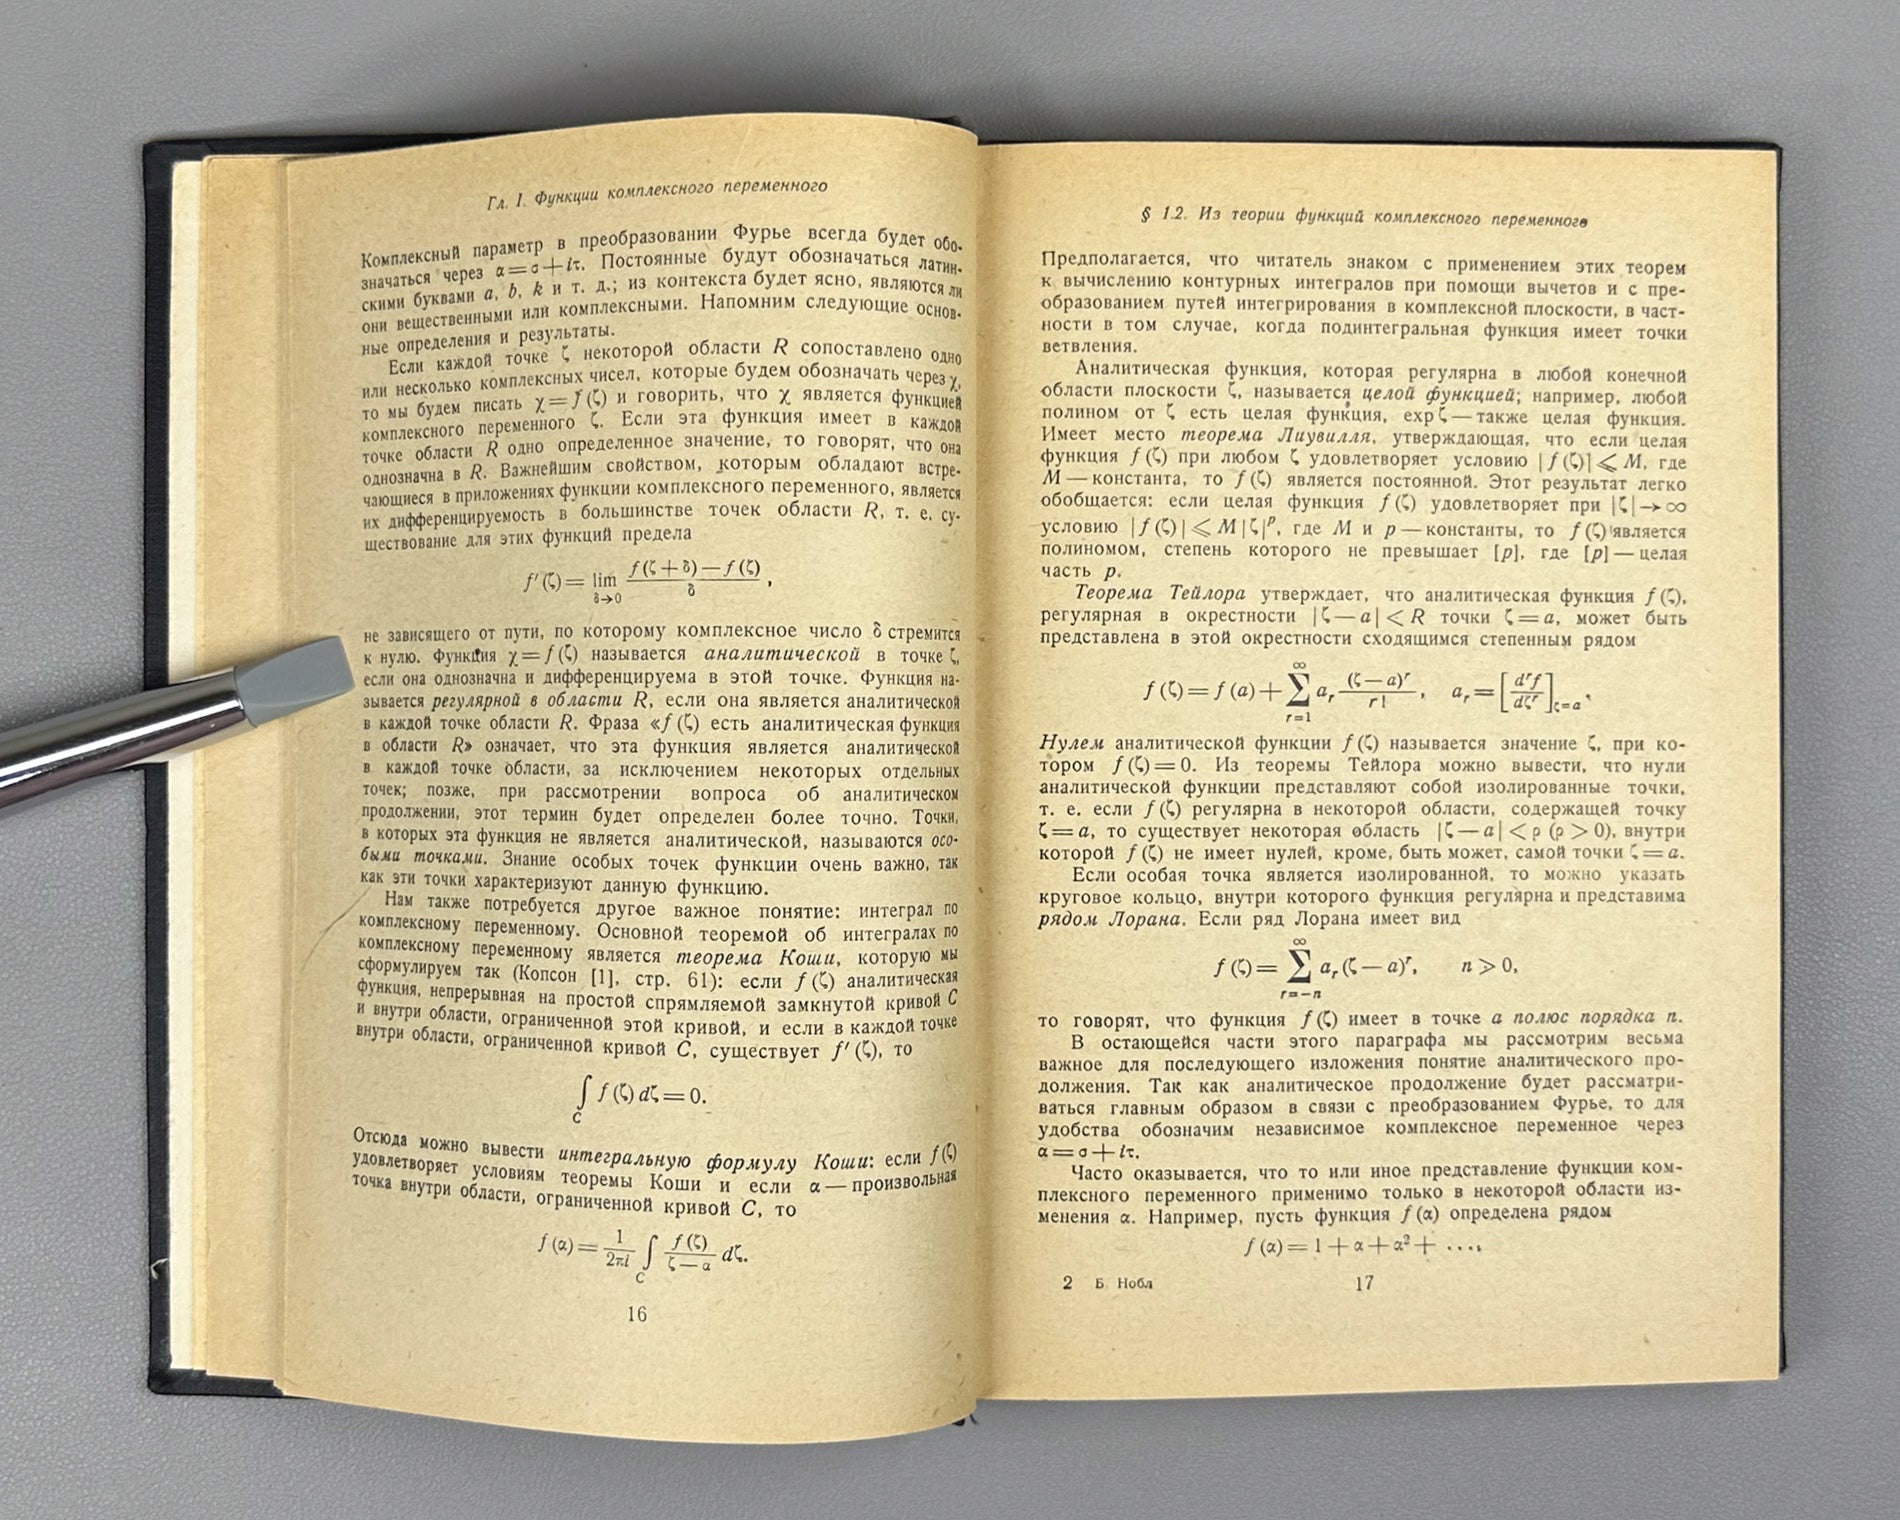 Гл. I. Функции комплексного переменного
Комплексный параметр в преобразовании Фурье всегда будет обо-
значаться через α = σ + iτ. Постоянные будут обозначаться латин-
скими буквами a, b, k и т. д.; из контекста будет ясно, являются ли
они вещественными или комплексными. Напомним следующие основ-
ные определения и результаты.
Если каждой точке ζ некоторой области R сопоставлено одно
или несколько комплексных чисел, которые будем обозначать через χ,
то мы будем писать χ = f (ζ) и говорить, что χ является функцией
комплексного переменного ζ. Если эта функция имеет в каждой
точке области R одно определенное значение, то говорят, что она
однозначна в R. Важнейшим свойством, которым обладают встре-
чающиеся в приложениях функции комплексного переменного, является
их дифференцируемость в большинстве точек области R, т. е. су-
ществование для этих функций предела
f′ (ζ) = lim_{δ→0} \frac{f (ζ + δ) — f (ζ)}{δ},
не зависящего от пути, по которому комплексное число δ стремится
к нулю. Функция χ = f (ζ) называется аналитической в точке ζ,
если она однозначна и дифференцируема в этой точке. Функция на-
зывается регулярной в области R, если она является аналитической
в каждой точке области R. Фраза «f (ζ) есть аналитическая функция
в области R» означает, что эта функция является аналитической
в каждой точке области, за исключением некоторых отдельных
точек; позже, при рассмотрении вопроса об аналитическом
продолжении, этот термин будет определен более точно. Точки,
в которых эта функция не является аналитической, называются осо-
быми точками. Знание особых точек функции очень важно, так
как эти точки характеризуют данную функцию.
Нам также потребуется другое важное понятие: интеграл по
комплексному переменному. Основной теоремой об интегралах по
комплексному переменному является теорема Коши, которую мы
сформулируем так (Копсон [1], стр. 61): если f (ζ) аналитическая
функция, непрерывная на простой спрямляемой замкнутой кривой C
и внутри области, ограниченной этой кривой, и если в каждой точке
внутри области, ограниченной кривой C, существует f′ (ζ), то
∫_C f (ζ) dζ = 0.
Отсюда можно вывести интегральную формулу Коши: если f (ζ)
удовлетворяет условиям теоремы Коши и если α — произвольная
точка внутри области, ограниченной кривой C, то
f (α) = \frac{1}{2πi} ∫_C \frac{f (ζ)}{ζ — α} dζ.
16
§ 1.2. Из теории функций комплексного переменного
Предполагается, что читатель знаком с применением этих теорем
к вычислению контурных интегралов при помощи вычетов и с пре-
образованием путей интегрирования в комплексной плоскости, в част-
ности в том случае, когда подинтегральная функция имеет точки
ветвления.
Аналитическая функция, которая регулярна в любой конечной
области плоскости ζ, называется целой функцией; например, любой
полином от ζ есть целая функция, exp ζ — также целая функция.
Имеет место теорема Лиувилля, утверждающая, что если целая
функция f (ζ) при любом ζ удовлетворяет условию | f (ζ)| ⩽ M, где
M — константа, то f (ζ) является постоянной. Этот результат легко
обобщается: если целая функция f (ζ) удовлетворяет при |ζ| → ∞
условию | f (ζ)| ⩽ M |ζ|^p, где M и p — константы, то f (ζ) является
полиномом, степень которого не превышает [p], где [p] — целая
часть p.
Теорема Тейлора утверждает, что аналитическая функция f (ζ),
регулярная в окрестности |ζ — a| < R точки ζ = a, может быть
представлена в этой окрестности сходящимся степенным рядом
f (ζ) = f (a) + ∑_{r=1}^{∞} a_r \frac{(ζ — a)^r}{r!}, a_r = [\frac{d^r f}{dζ^r}]_{ζ=a}.
Нулем аналитической функции f (ζ) называется значение ζ, при ко-
тором f (ζ) = 0. Из теоремы Тейлора можно вывести, что нули
аналитической функции представляют собой изолированные точки,
т. е. если f (ζ) регулярна в некоторой области, содержащей точку
ζ = a, то существует некоторая область |ζ — a| < ρ (ρ > 0), внутри
которой f (ζ) не имеет нулей, кроме, быть может, самой точки ζ = a.
Если особая точка является изолированной, то можно указать
круговое кольцо, внутри которого функция регулярна и представима
рядом Лорана. Если ряд Лорана имеет вид
f (ζ) = ∑_{r=—n}^{∞} a_r (ζ — a)^r, n > 0,
то говорят, что функция f (ζ) имеет в точке a полюс порядка n.
В остающейся части этого параграфа мы рассмотрим весьма
важное для последующего изложения понятие аналитического про-
должения. Так как аналитическое продолжение будет рассматри-
ваться главным образом в связи с преобразованием Фурье, то для
удобства обозначим независимое комплексное переменное через
α = σ + iτ.
Часто оказывается, что то или иное представление функции ком-
плексного переменного применимо только в некоторой области из-
менения α. Например, пусть функция f (α) определена рядом
f (α) = 1 + α + α² + ....
2 Б. Нобл
17